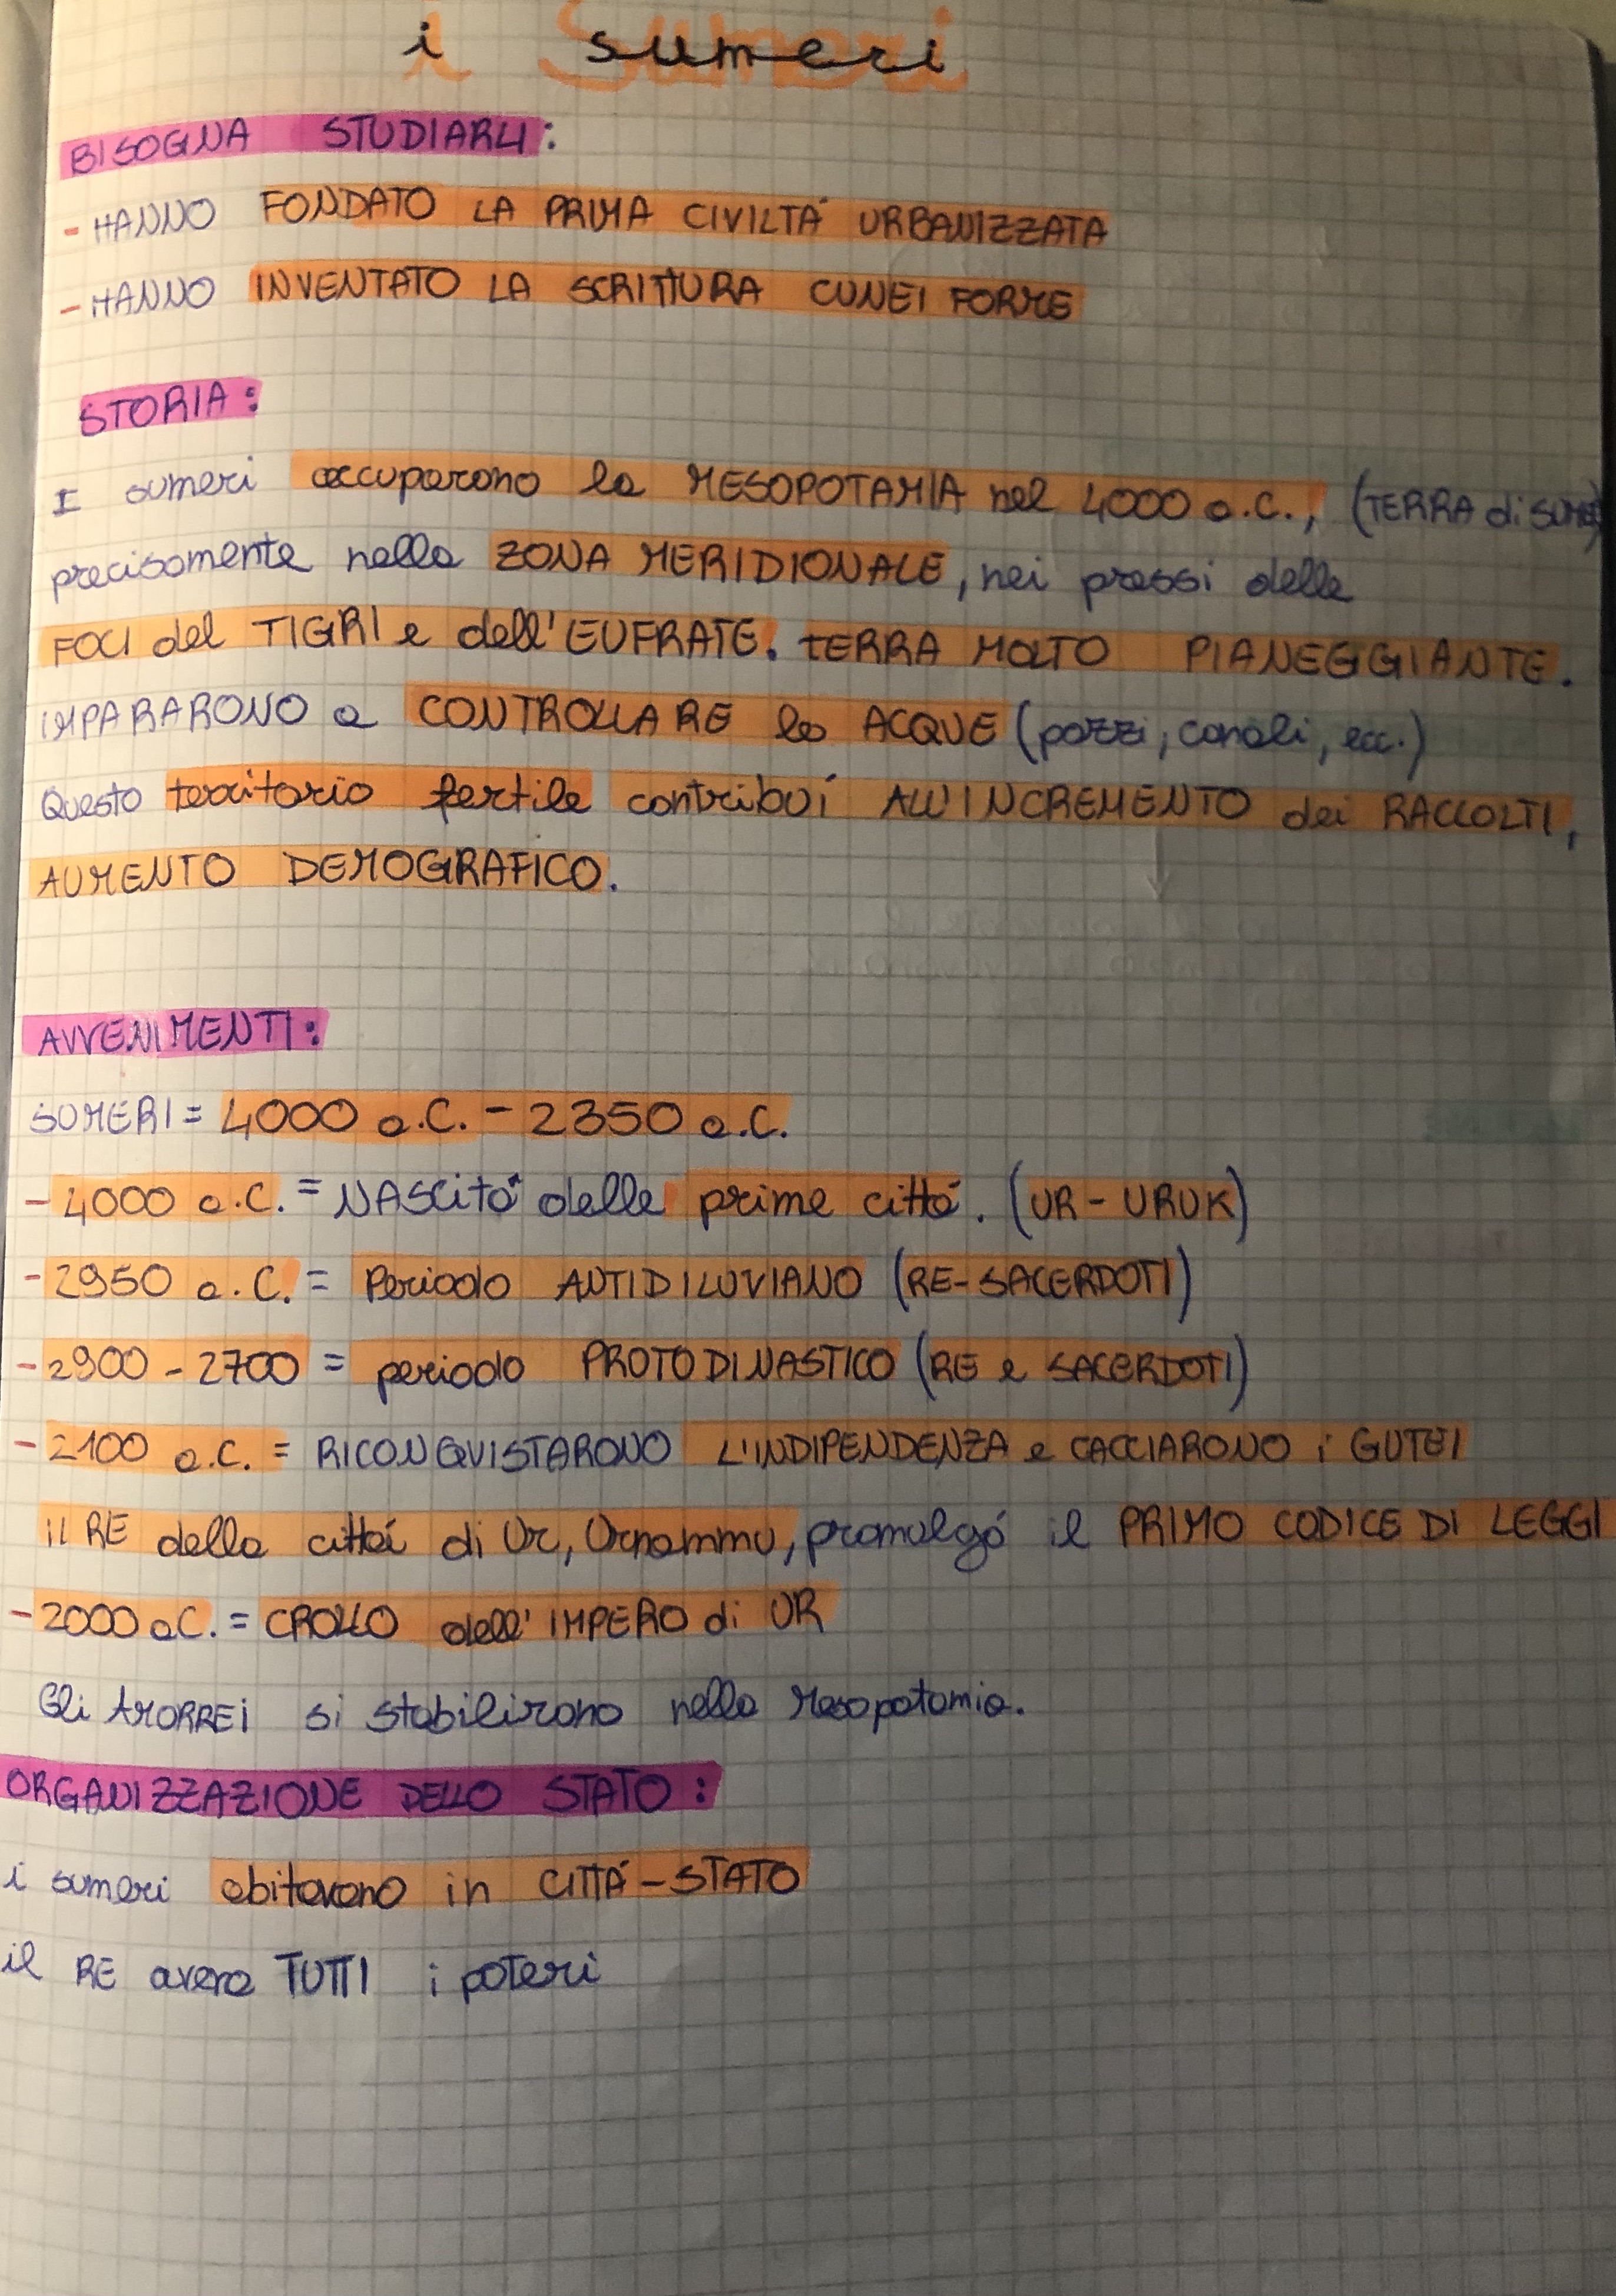 i sumeri
BISOGNA STUDIARLI:
- HANNO FONDATO LA PRIMA CIVILTÁ URBANIZZATA
- HANNO INVENTATO LA SCRITTURA CUNEI FORME
STORIA:
I sumeri occuparono la MESOPOTAMIA nel 4000 a.C., (TERRA di SUMER)
precisamente nella ZONA MERIDIONALE, nei pressi delle
FOCI del TIGRI e dell'EUFRATE. TERRA MOLTO PIANEGGIANTE.
IMPARARONO a CONTROLLARE le ACQUE (pozzi, canali, ecc.)
Questo territorio fertile contribuí ALL'INCREMENTO dei RACCOLTI,
AUMENTO DEMOGRAFICO.
AVVENIMENTI:
SUMERI = 4000 a.C. - 2350 a.C.
- 4000 a.C. = NAScita delle prime cittá. (UR - URUK)
- 2950 a.C. = Periodo ANTIDILUVIANO (RE-SACERDOTI)
- 2900 - 2700 = periodo PROTODINASTICO (RE e SACERDOTI)
- 2100 a.C. = RICONQUISTARONO L'INDIPENDENZA e CACCIARONO i GUTEI
il RE della cittá di Ur, Urnammu, promulgó il PRIMO CODICE DI LEGGI
- 2000 a.C. = CROLLO dell'IMPERO di UR
Gli AMORREI si stabilirono nella Mesopotamia.
ORGANIZZAZIONE DELLO STATO:
i sumeri abitavano in CITTÁ-STATO
il RE aveva TUTTI i poteri